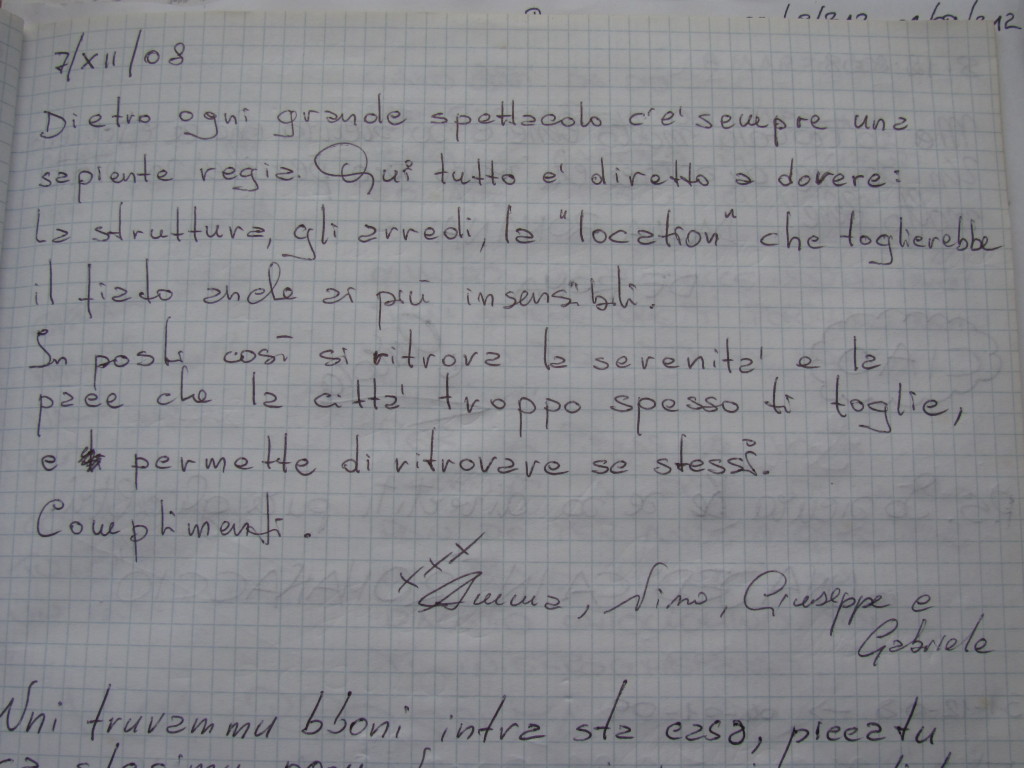 7/XII/08
Dietro ogni grande spettacolo c'è sempre una
sapiente regia. Qui tutto è diretto a dovere:
la struttura, gli arredi, la "location" che toglierebbe
il fiato anche ai più insensibili.
In posti così si ritrova la serenità e la
pace che la città troppo spesso ti toglie,
e permette di ritrovare se stessi.
Complimenti.
xxx
Nino, Giuseppe e
Gabriele
Uni truvammu bboni intra sta casa, piccatu